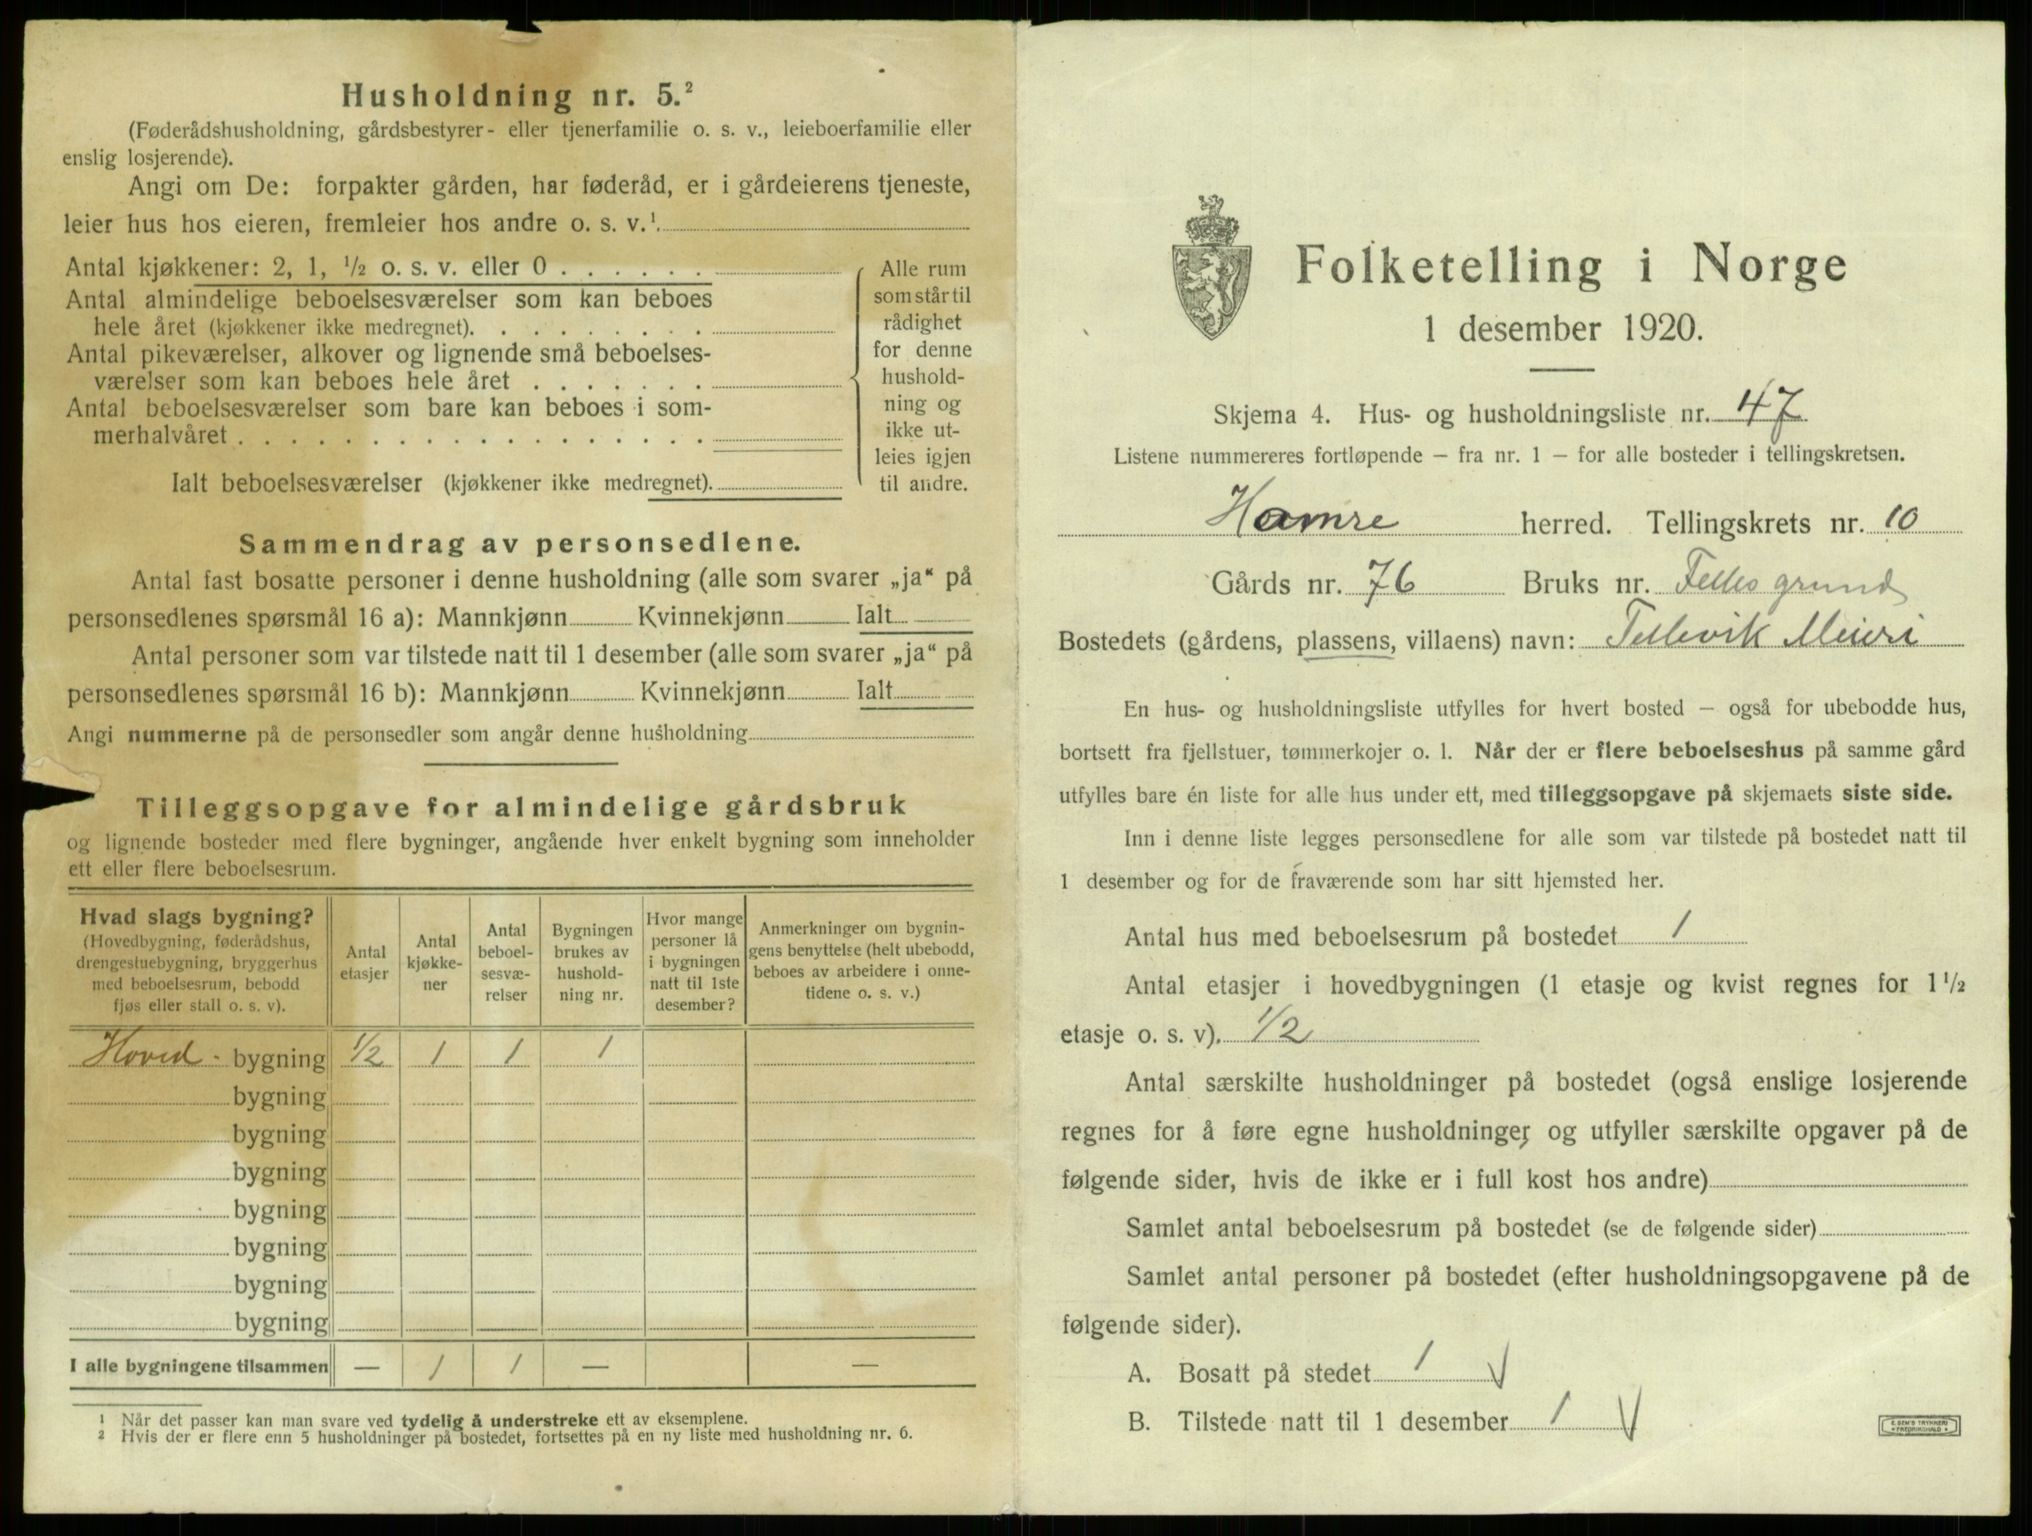 Husholdning nr. 5.²
(Føderådshusholdning, gårdsbestyrer- eller tjenerfamilie o. s. v., leieboerfamilie eller
enslig losjerende).
Angi om De: forpakter gården, har føderåd, er i gårdeierens tjeneste,
leier hus hos eieren, fremleier hos andre o. s. v.¹.
Antal kjøkkener: 2, 1, ½ o. s. v. eller 0
Antal almindelige beboelsesværelser som kan beboes
hele året (kjøkkener ikke medregnet).
Antal pikeværelser, alkover og lignende små beboelses-
værelser som kan beboes hele året
Antal beboelsesværelser som bare kan beboes i som-
merhalvåret
Ialt beboelsesværelser (kjøkkener ikke medregnet).
Alle rum
som står til
rådighet
for denne
hushold-
ning og
ikke ut-
leies igjen
til andre.
Sammendrag av personsedlene.
Antal fast bosatte personer i denne husholdning (alle som svarer „ja“ på
personsedlenes spørsmål 16 a): Mannkjønn Kvinnekjønn Ialt
Antal personer som var tilstede natt til 1 desember (alle som svarer „ja“ på
personsedlenes spørsmål 16 b): Mannkjønn Kvinnekjønn Ialt
Angi nummerne på de personsedler som angår denne husholdning
Tilleggsopgave for almindelige gårdsbruk
og lignende bosteder med flere bygninger, angående hver enkelt bygning som inneholder
ett eller flere beboelsesrum.
Hvad slags bygning?
(Hovedbygning, føderådshus,
drengestuebygning, bryggerhus
med beboelsesrum, bebodd
fjøs eller stall o. s. v).
Antal
etasjer
Antal
kjøkke-
ner
Antal
beboel-
sesvæ-
relser
Bygningen
brukes av
hushold-
ning nr.
Hvor mange
personer lå
i bygningen
natt til 1ste
desember?
Anmerkninger om bygnin-
gens benyttelse (helt ubebodd,
beboes av arbeidere i onne-
tidene o. s. v.)
Hoved- bygning ½ 1 1 1
bygning
bygning
bygning
bygning
bygning
bygning
bygning
I alle bygningene tilsammen — 1 1 — —
1 Når det passer kan man svare ved tydelig å understreke ett av eksemplene.
2 Hvis der er flere enn 5 husholdninger på bostedet, fortsettes på en ny liste med husholdning nr. 6.
Folketelling i Norge
1 desember 1920.
Skjema 4. Hus- og husholdningsliste nr. 47
Listene nummereres fortløpende – fra nr. 1 – for alle bosteder i tellingskretsen.
Hamre herred. Tellingskrets nr. 10
Gårds nr. 76 Bruks nr. Felles grund
Bostedets (gårdens, plassens, villaens) navn: Tellevik Meieri
En hus- og husholdningsliste utfylles for hvert bosted – også for ubebodde hus,
bortsett fra fjellstuer, tømmerkojer o. l. Når der er flere beboelseshus på samme gård
utfylles bare én liste for alle hus under ett, med tilleggsopgave på skjemaets siste side.
Inn i denne liste legges personsedlene for alle som var tilstede på bostedet natt til
1 desember og for de fraværende som har sitt hjemsted her.
Antal hus med beboelsesrum på bostedet 1
Antal etasjer i hovedbygningen (1 etasje og kvist regnes for 1½
etasje o. s. v). ½
Antal særskilte husholdninger på bostedet (også enslige losjerende
regnes for å føre egne husholdninger og utfyller særskilte opgaver på de
følgende sider, hvis de ikke er i full kost hos andre)
Samlet antal beboelsesrum på bostedet (se de følgende sider)
Samlet antal personer på bostedet (efter husholdningsopgavene på de
følgende sider).
A. Bosatt på stedet 1 √
B. Tilstede natt til 1 desember 1 √
E. SEM'S TRYKKERI
FREDRIKSHALD